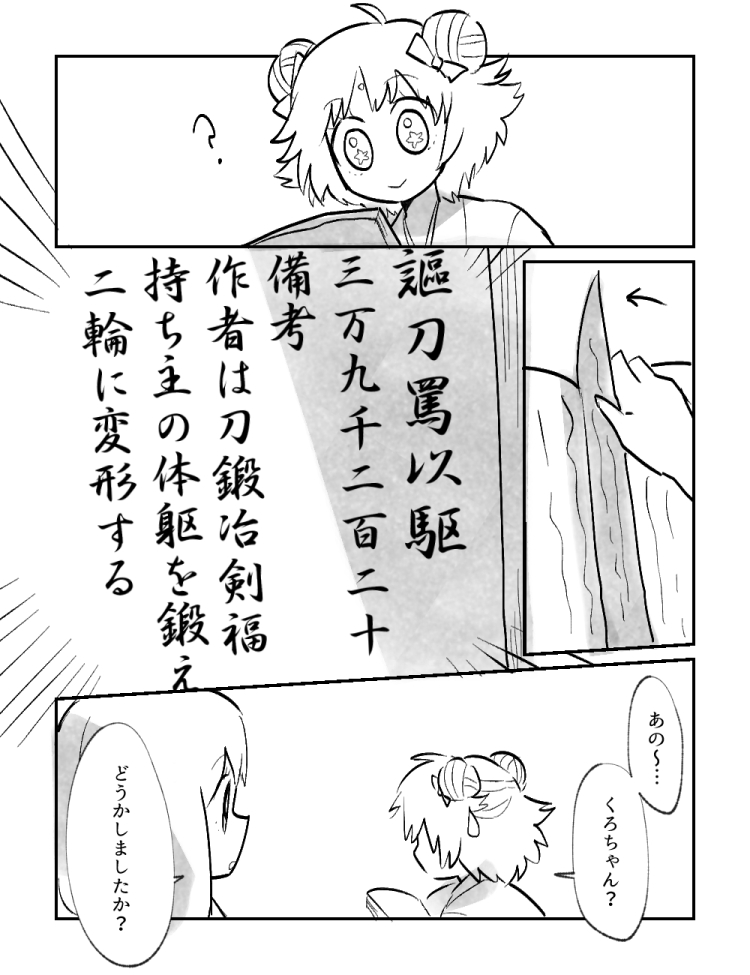 ?
謳刀罵以駆
三万九千二百二十
備考
作者は刀鍛冶剣福
持ち主の体躯を鍛え
二輪に変形する
あの〜…
くろちゃん?
どうかしましたか?